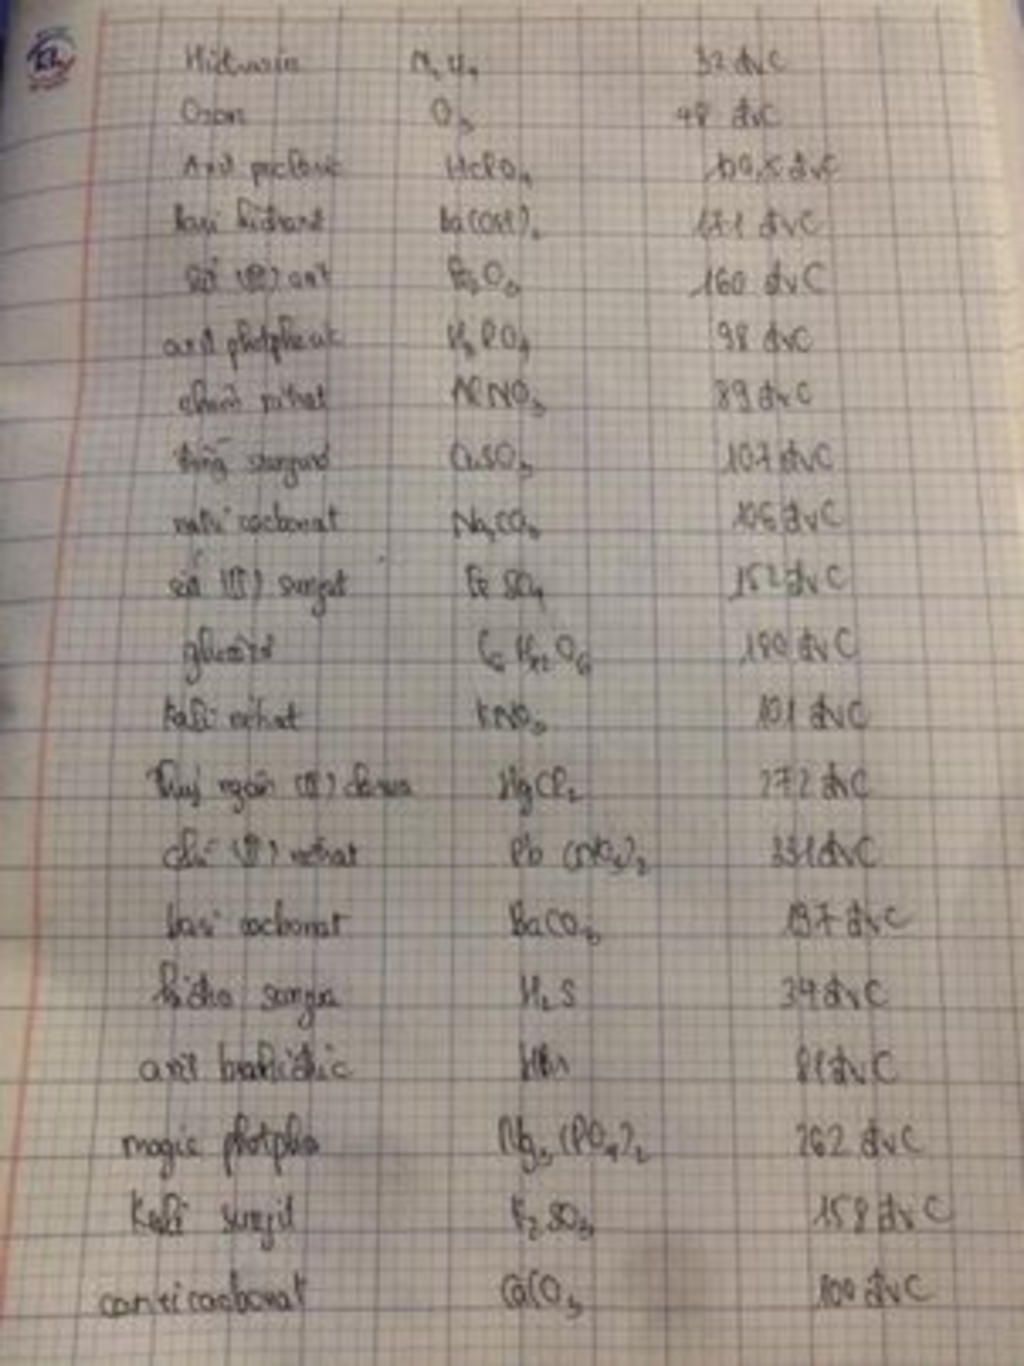 Hidrazin N2H4 32 đvC
Ozon O3 48 đvC
Axit pecloric HClO4 100,5 đvC
bari hidroxit Ba(OH)2 171 đvC
sắt (III) oxit Fe2O3 160 đvC
axit photphoric H3PO4 98 đvC
nitrat AlNO3 89 đvC
CuSO3 107 đvC
natri cacbonat Na2CO3 106 đvC
sắt (II) sunfat FeSO4 152 đvC
glucozơ C6H12O6 180 đvC
kali nitrat KNO3 101 đvC
thuỷ ngân (II) clorua HgCl2 272 đvC
chì (II) nitrat Pb (NO3)2 331 đvC
bari cacbonat BaCO3 197 đvC
hidro sunfua H2S 34 đvC
axit bromhidric HBr 81 đvC
magie photpho Mg3(PO4)2 262 đvC
Kali sunfit K2SO3 158 đvC
canxi cacbonat CaCO3 100 đvC